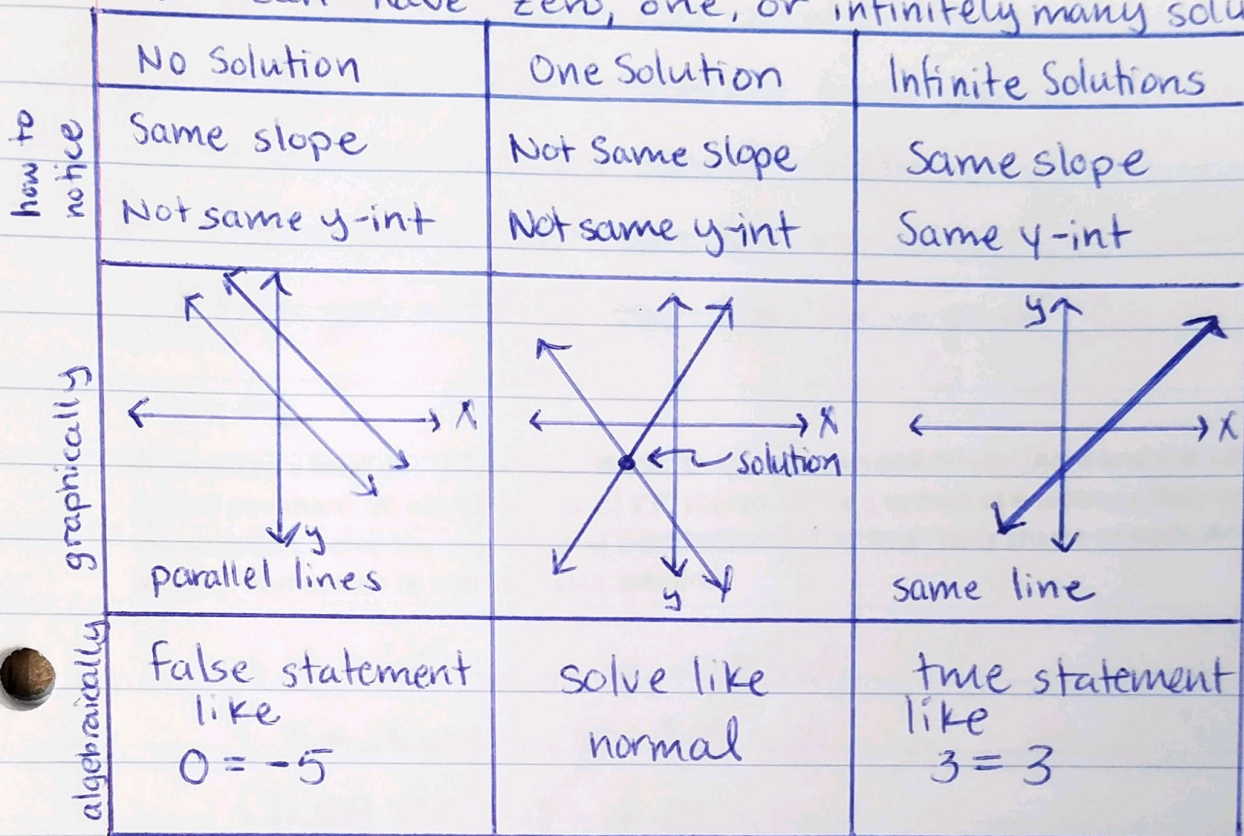 can have zero, one, or infinitely many solu
No Solution
One Solution
Infinite Solutions
how to
notice
Same slope
Not same y-int
Not Same slope
Not same y-int
Same slope
Same y-int
graphically
x
y
parallel lines
x
solution
y
y
x
same line
algebraically
false statement
like
0 = -5
solve like
normal
true statement
like
3 = 3